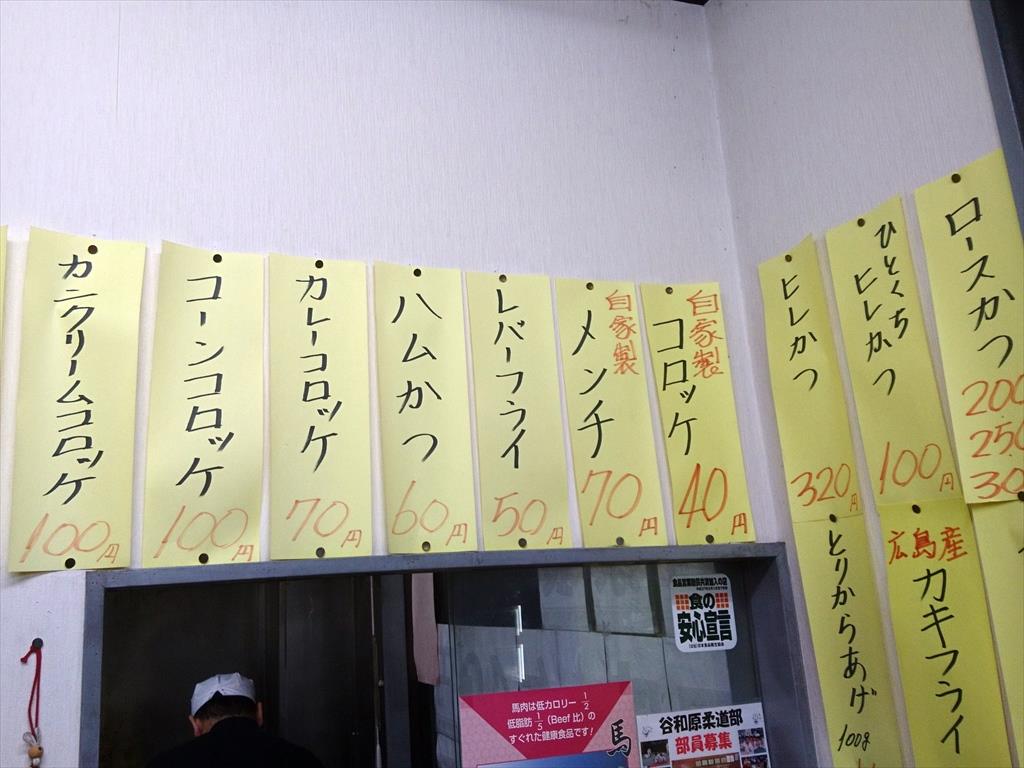 カニクリームコロッケ
100円
コーンコロッケ
100円
カレーコロッケ
70円
ハムかつ
60円
レバーフライ
50円
自家製
メンチ
70円
自家製
コロッケ
40円
ヒレかつ
320円
ひとくち
ヒレかつ
100円
ロースかつ
200
250
30
とりからあげ
100g
広島産
カキフライ
食の
安心宣言
馬肉は低カロリー1/2
低脂肪1/5（Beef 比）の
すぐれた健康食品です!
馬
谷和原柔道部
部員募集